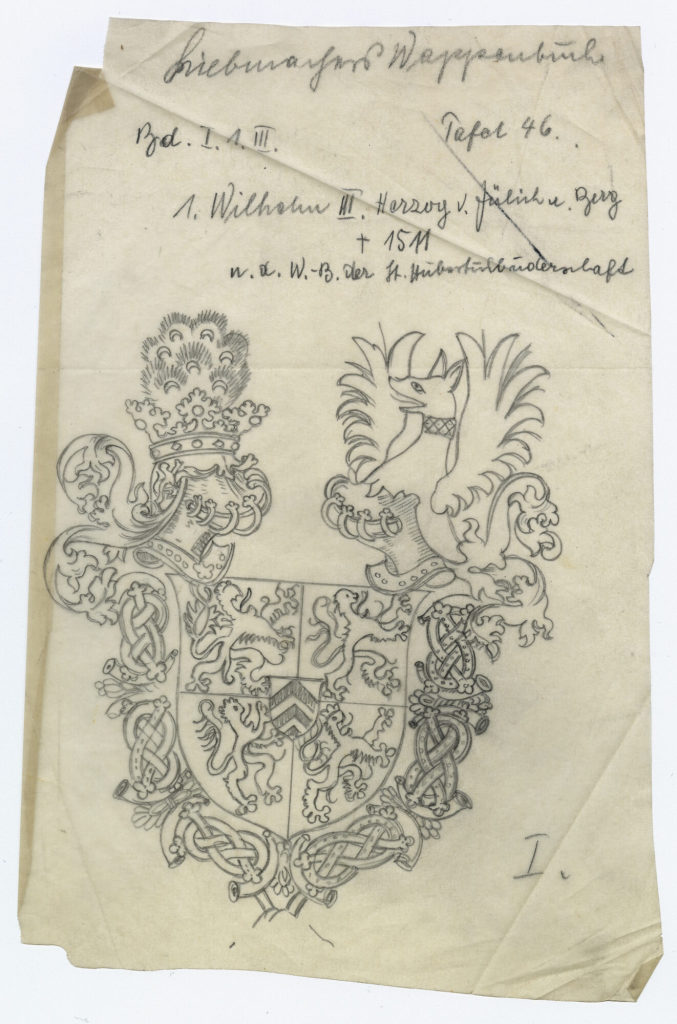 Siebmachers Wappenbuch
Bd. I. 1. III. Tafel 46.
1. Wilhelm III. Herzog v. Jülich u. Berg
† 1511
n. d. W.-B. der St. Hubertusbruderschaft
I.